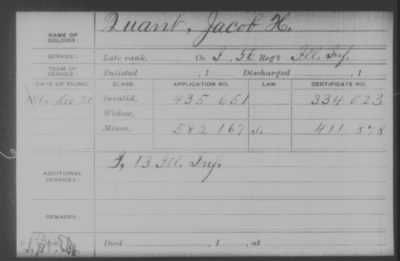 NAME OF SOLDIER: Quant, Jacob H.
SERVICE: Late rank, Co. I, 56 Reg't Ill. Inf.
TERM OF SERVICE: Enlisted , 1 Discharged , 1
DATE OF FILING. CLASS. APPLICATION NO. LAW. CERTIFICATE NO.
Invalid, 435 651 334 023
Widow,
Minor, 582 167 411 878
ADDITIONAL SERVICES: I, 13 Ill. Inf.
REMARKS:
Died , 1 , at